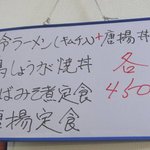 冷ラーメン(キムチ)+唐揚丼
しょうが焼丼 各
ばみそ煮定食 450
唐揚定食